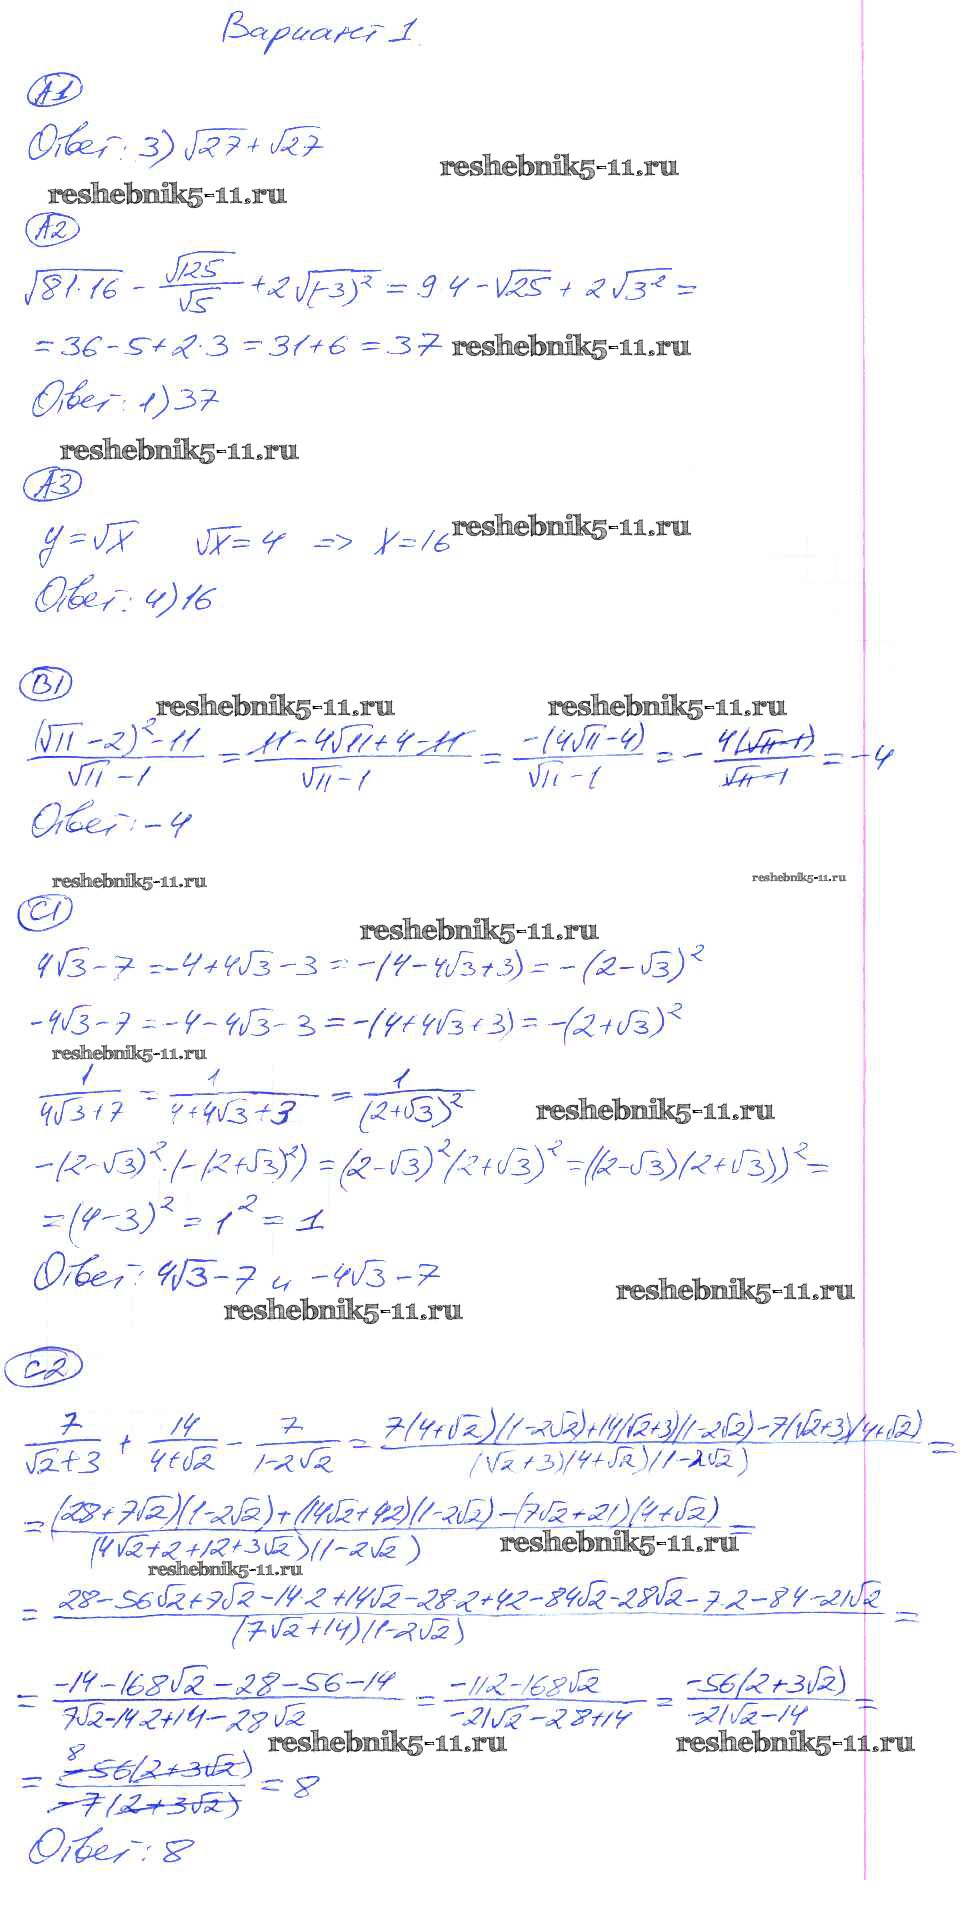 Вариант 1
А1
Ответ: 3) √27 + √27
reshebnik5-11.ru
reshebnik5-11.ru
А2
√81·16 - √125/√5 + 2√(-3)² = 9·4 - √25 + 2√3² =
= 36 - 5 + 2·3 = 31 + 6 = 37 reshebnik5-11.ru
Ответ: 1) 37
reshebnik5-11.ru
А3
y = √x √x = 4 => x = 16 reshebnik5-11.ru
Ответ: 4) 16
В1
reshebnik5-11.ru reshebnik5-11.ru
((√11 - 2)² - 11)/(√11 - 1) = (11 - 4√11 + 4 - 11)/(√11 - 1) = (-(4√11 - 4))/(√11 - 1) = - (4(√11 - 1))/(√11 - 1) = -4
Ответ: -4
reshebnik5-11.ru reshebnik5-11.ru
С1
reshebnik5-11.ru
4√3 - 7 = -4 + 4√3 - 3 = -(4 - 4√3 + 3) = -(2 - √3)²
-4√3 - 7 = -4 - 4√3 - 3 = -(4 + 4√3 + 3) = -(2 + √3)²
reshebnik5-11.ru
1/(4√3 + 7) = 1/(4 + 4√3 + 3) = 1/(2 + √3)² reshebnik5-11.ru
-(2 - √3)² · (-(2 + √3)²) = (2 - √3)² (2 + √3)² = ((2 - √3)(2 + √3))² =
= (4 - 3)² = 1² = 1
Ответ: 4√3 - 7 и -4√3 - 7
reshebnik5-11.ru reshebnik5-11.ru
С2
7/(√2 + 3) + 14/(4 + √2) - 7/(1 - 2√2) = (7(4 + √2)(1 - 2√2) + 14(√2 + 3)(1 - 2√2) - 7(√2 + 3)(4 + √2))/((√2 + 3)(4 + √2)(1 - 2√2)) =
= ((28 + 7√2)(1 - 2√2) + (14√2 + 42)(1 - 2√2) - (7√2 + 21)(4 + √2))/((4√2 + 2 + 12 + 3√2)(1 - 2√2)) =
reshebnik5-11.ru
reshebnik5-11.ru
= (28 - 56√2 + 7√2 - 14·2 + 14√2 - 28·2 + 42 - 84√2 - 28√2 - 7·2 - 84 - 21√2)/((7√2 + 14)(1 - 2√2)) =
= (-14 - 168√2 - 28 - 56 - 14)/(7√2 - 14·2 + 14 - 28√2) = (-112 - 168√2)/(-21√2 - 28 + 14) = (-56(2 + 3√2))/(-21√2 - 14) =
reshebnik5-11.ru reshebnik5-11.ru
8
= (-56(2 + 3√2))/(-7(2 + 3√2)) = 8
Ответ: 8